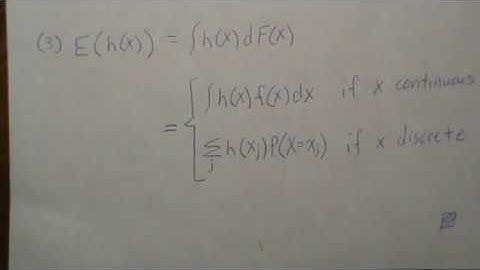 (3) E(h(x)) = ∫h(x)dF(x)
= { ∫h(x)f(x)dx if x continuous
∑j h(xj)P(X=xj) if x discrete